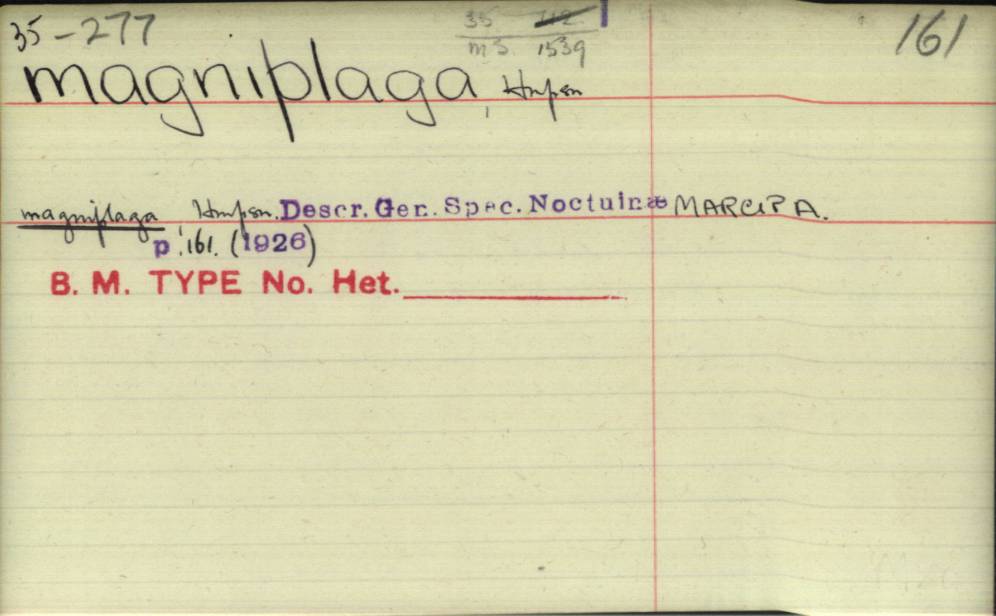 35-277
35 112.
MS. 1539
161
magniplaga, Hmpsn
magniplaga, Hmpsn. Descr. Gen. Spec. Noctuinæ MARCIPA.
p. 161. (1926)
B. M. TYPE No. Het.